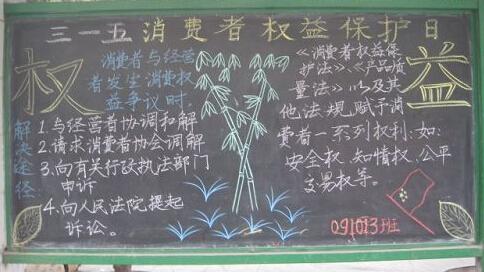 三一五消费者权益保护日
权
解决途径
消费者与经营
者发生消费权
益争议时
1.与经营者协调和解
2.请求消费者协会调解
3.向有关行政执法部门
申诉
4.向人民法院提起
诉讼。
《消费者权益保
护法》、《产品质
量法》以及其
他法规赋予消
费者一系列权利:如:
安全权、知情权、公平
交易权等。
益
091013班